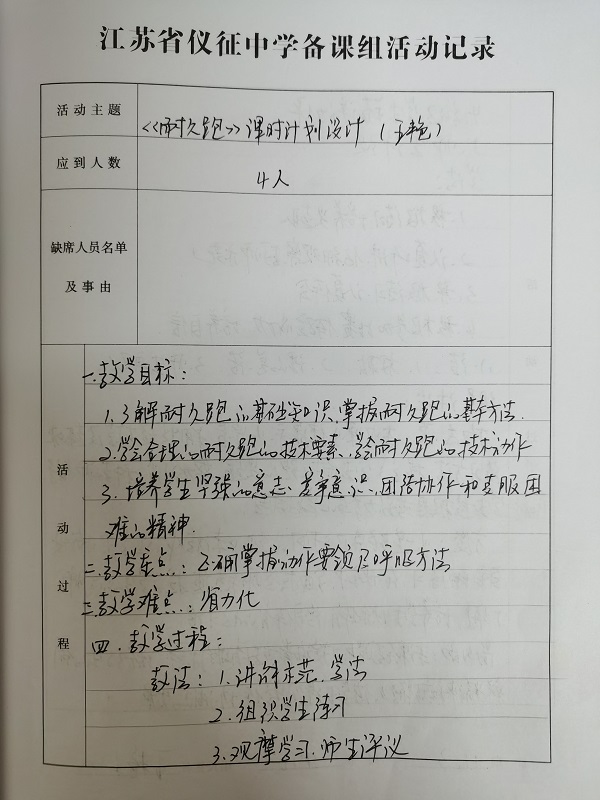 江苏省仪征中学备课组活动记录
活动主题
《耐久跑》课时计划设计（王艳）
应到人数
4人
缺席人员名单
及事由
活动过程
一、教学目标：
1.了解耐久跑的基础知识,掌握耐久跑的基本方法.
2.学会合理的耐久跑的技术要素,学会耐久跑的技术动作
3.培养学生坚强的意志、竞争意识,团结协作和克服困
难的精神.
二、教学重点：正确掌握动作要领及呼吸方法
三、教学难点：省力化
四、教学过程：
教法：1.讲解示范、学法
2.组织学生练习
3.观摩学习、师生评议